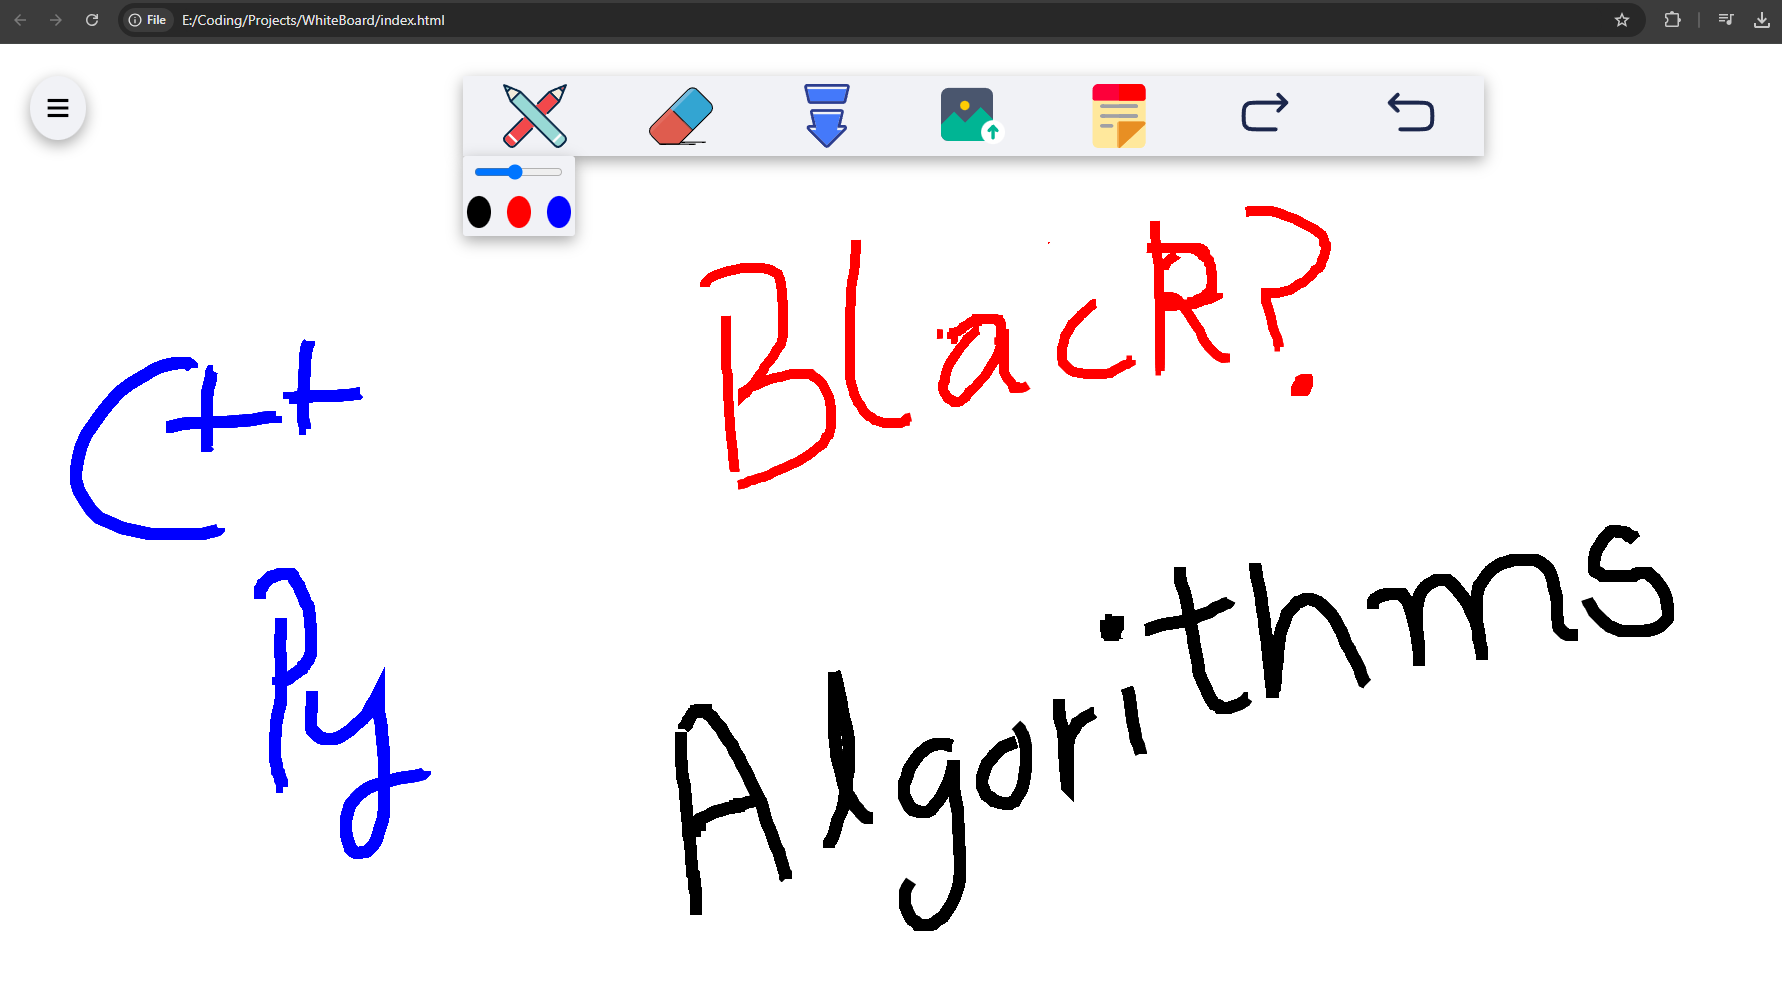 File E:/Coding/Projects/WhiteBoard/index.html
Black?
C++
Py
Algorithms